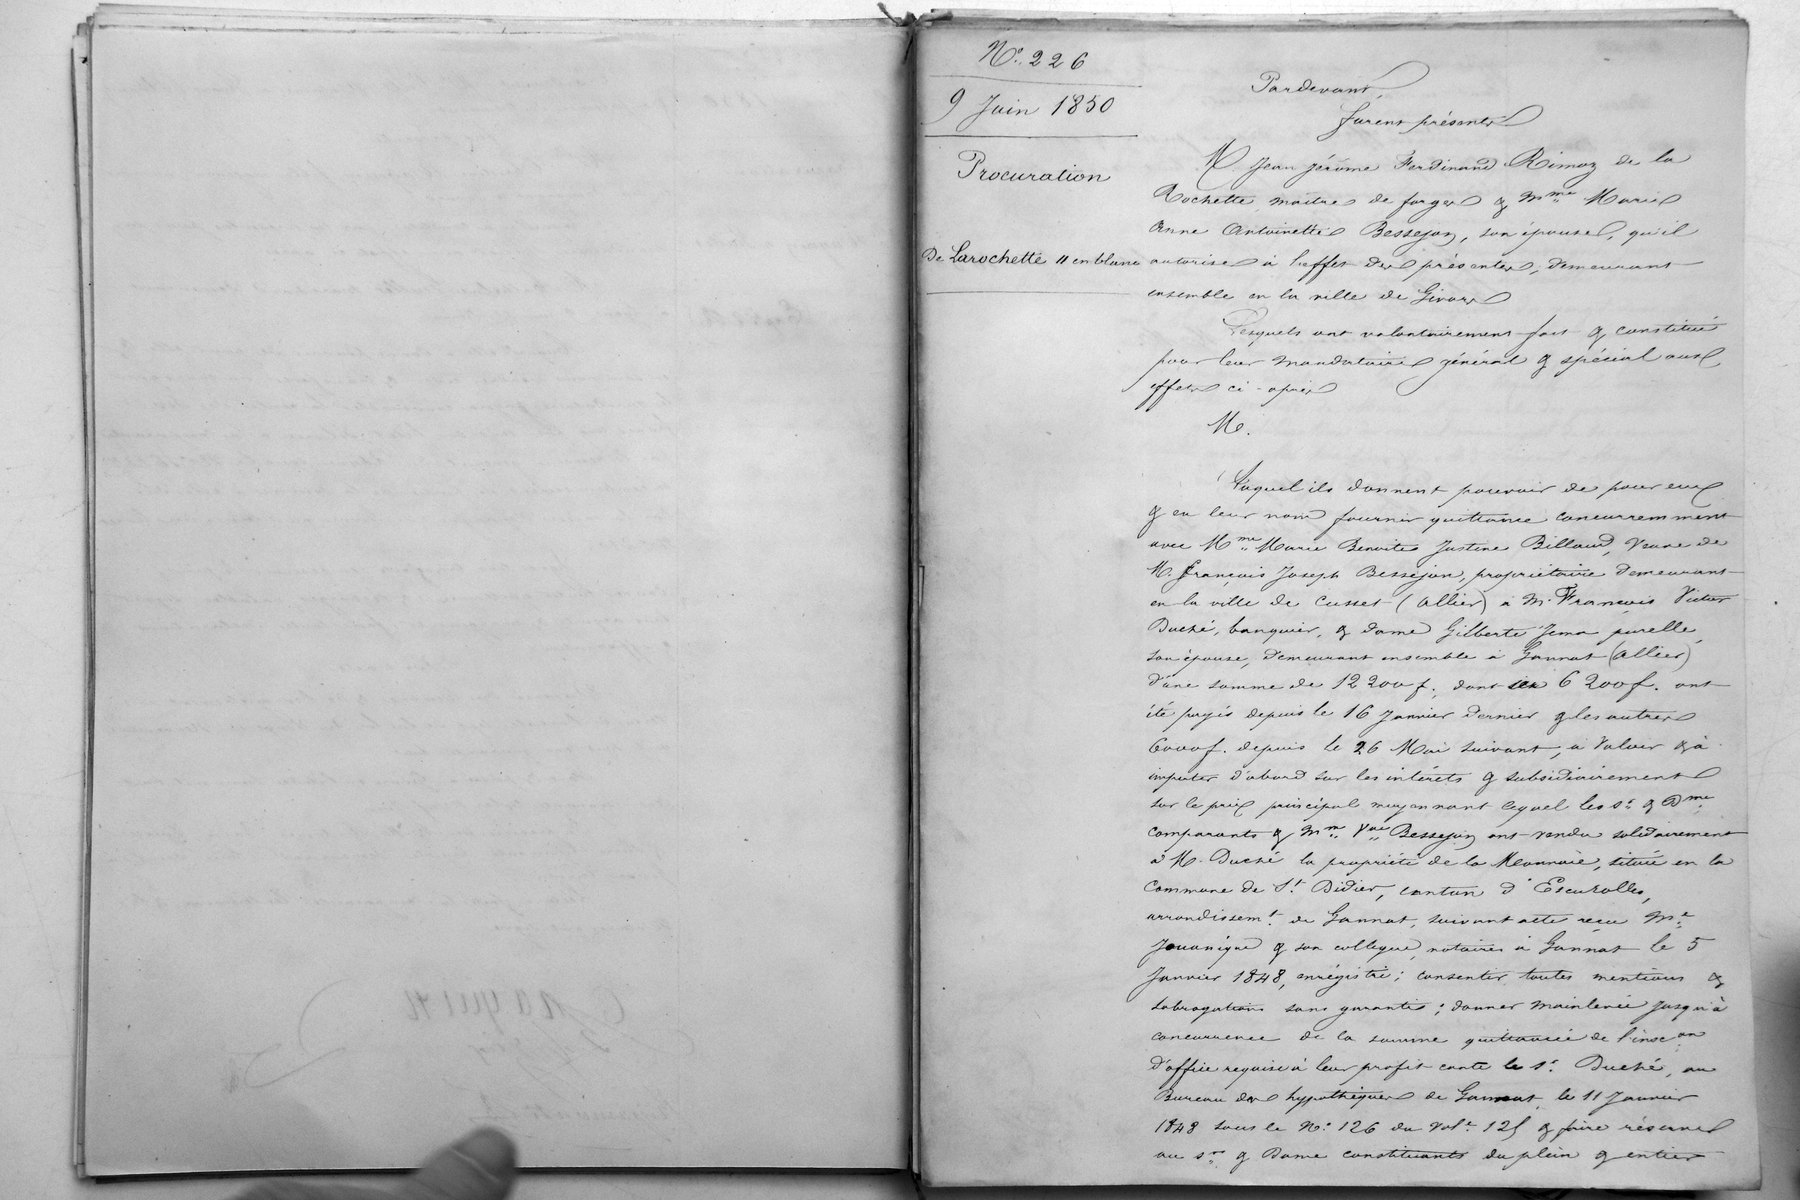 N° 226
9 Juin 1850
Procuration
De Larochette // en blanc
Pardevant,
furent présents
M. Jean Jérôme Ferdinand Rimoz de la
Rochette, maitre de forges & Mme Marie
Anne Antoinette Bessejon, son épouse, qu'il
autorise à l'effet des présentes, demeurant
ensemble en la ville de Givors
Lesquels ont volontairement fait & constitué
pour leur mandataire général & spécial aux
effets ci-après
M.
Auquel ils donnent pouvoir de pour eux
& en leur nom fournir quittance concurremment
avec Mme Marie Benoite Justine Billaud, Veuve de
M. François Joseph Bessejon, propriétaire demeurant
en la ville de Cusset (Allier) à M. François Victor
Duché, banquier, & dame Gilberte
son épouse, demeurant ensemble à Gannat (Allier)
d'une somme de 12 200 f., dont 6 200 f. ont
été payés depuis le 16 Janvier dernier & les autres
6000 f. depuis le 26 Mai suivant, à valoir & à
imputer d'abord sur les intérêts & subsidiairement
sur le prix principal moyennant lequel les sr & Dme
comparants & Mme Vve Bessejon ont vendu solidairement
à M. Duché la propriété de la située en la
Commune de St Didier, canton d'Escurolles,
arrondissemt de Gannat, suivant acte reçu Me
& son collegue, notaires à Gannat le 5
Janvier 1848, enrégistré; consentir toutes mentions &
subrogations sans garantie; donner mainlevée jusqu'à
concurrence de la somme quittancée de l'inscon
d'office requise à leur profit contre le sr Duché, au
Bureau des hypothèques de Gannat, le 11 Janvier
1848 sous le N° 126 du Vole 125 & faire réserve
au sr & Dame constituants du plein & entier